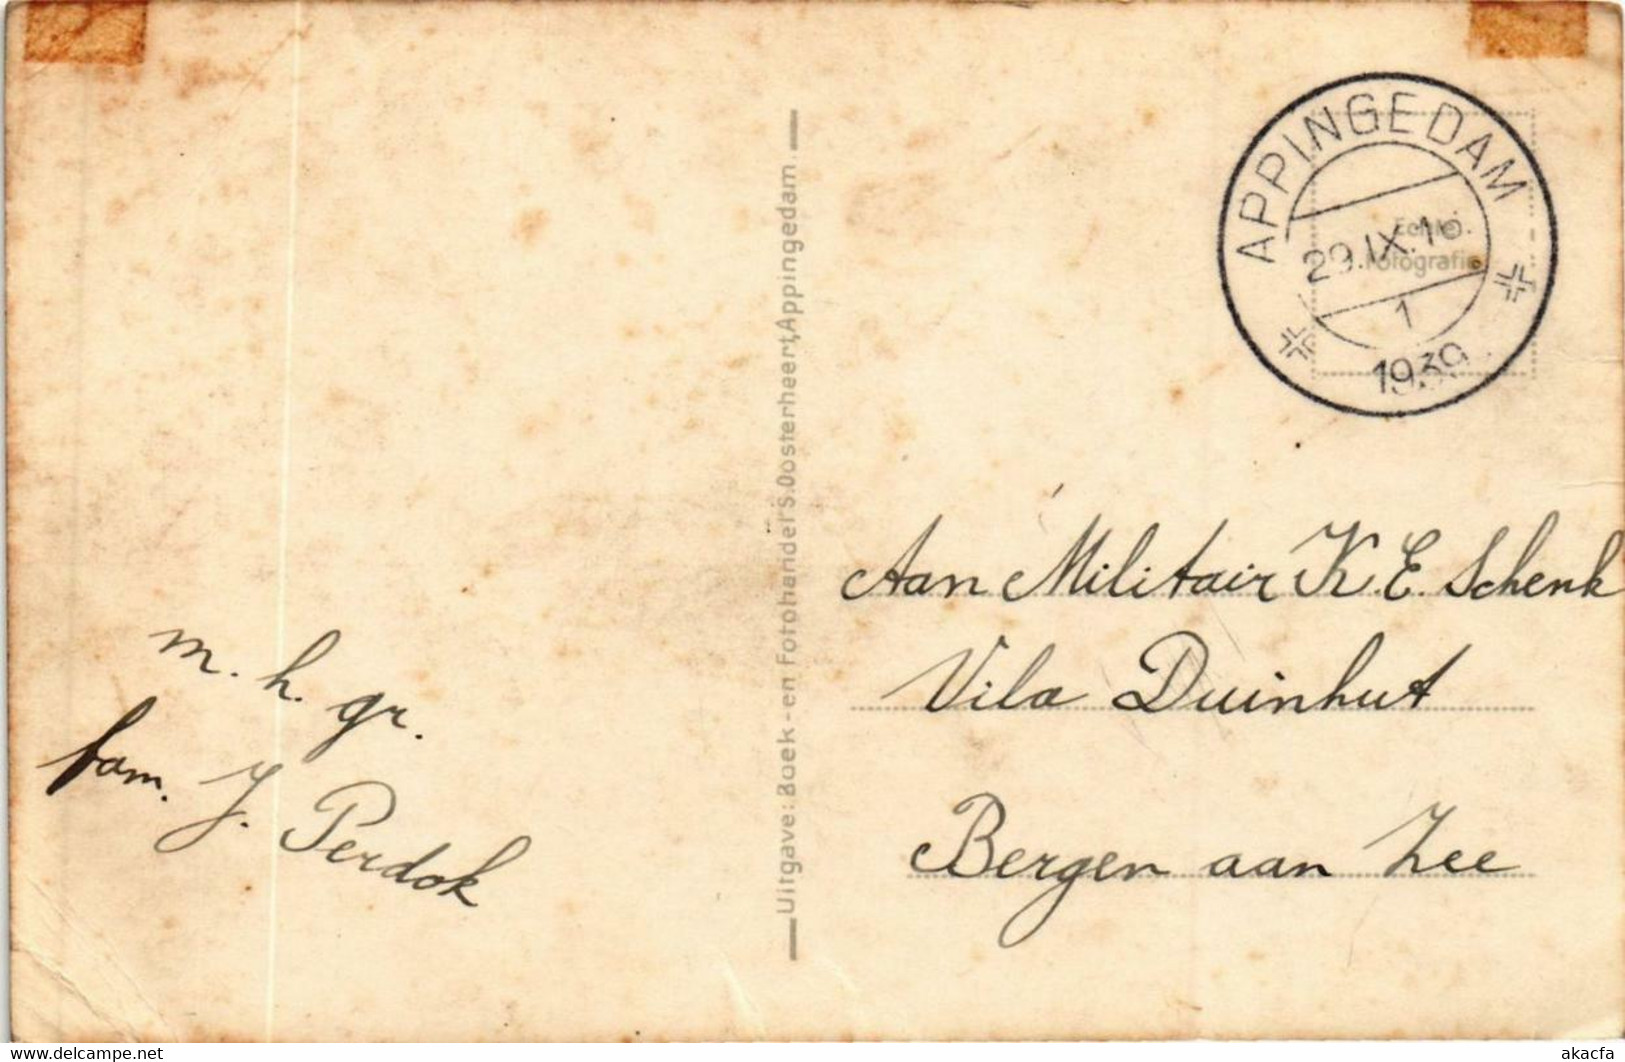 APPINGEDAM
29.IX.16
1
1939
Echte
Fotografie
Uitgave: Boek- en Fotohandel S. Oosterheert, Appingedam
m. h. gr.
fam. J. Perdok
Aan Militair K. E. Schenk
Vila Duinhut
Bergen aan Zee
https://www.delcampe.net
akacfa